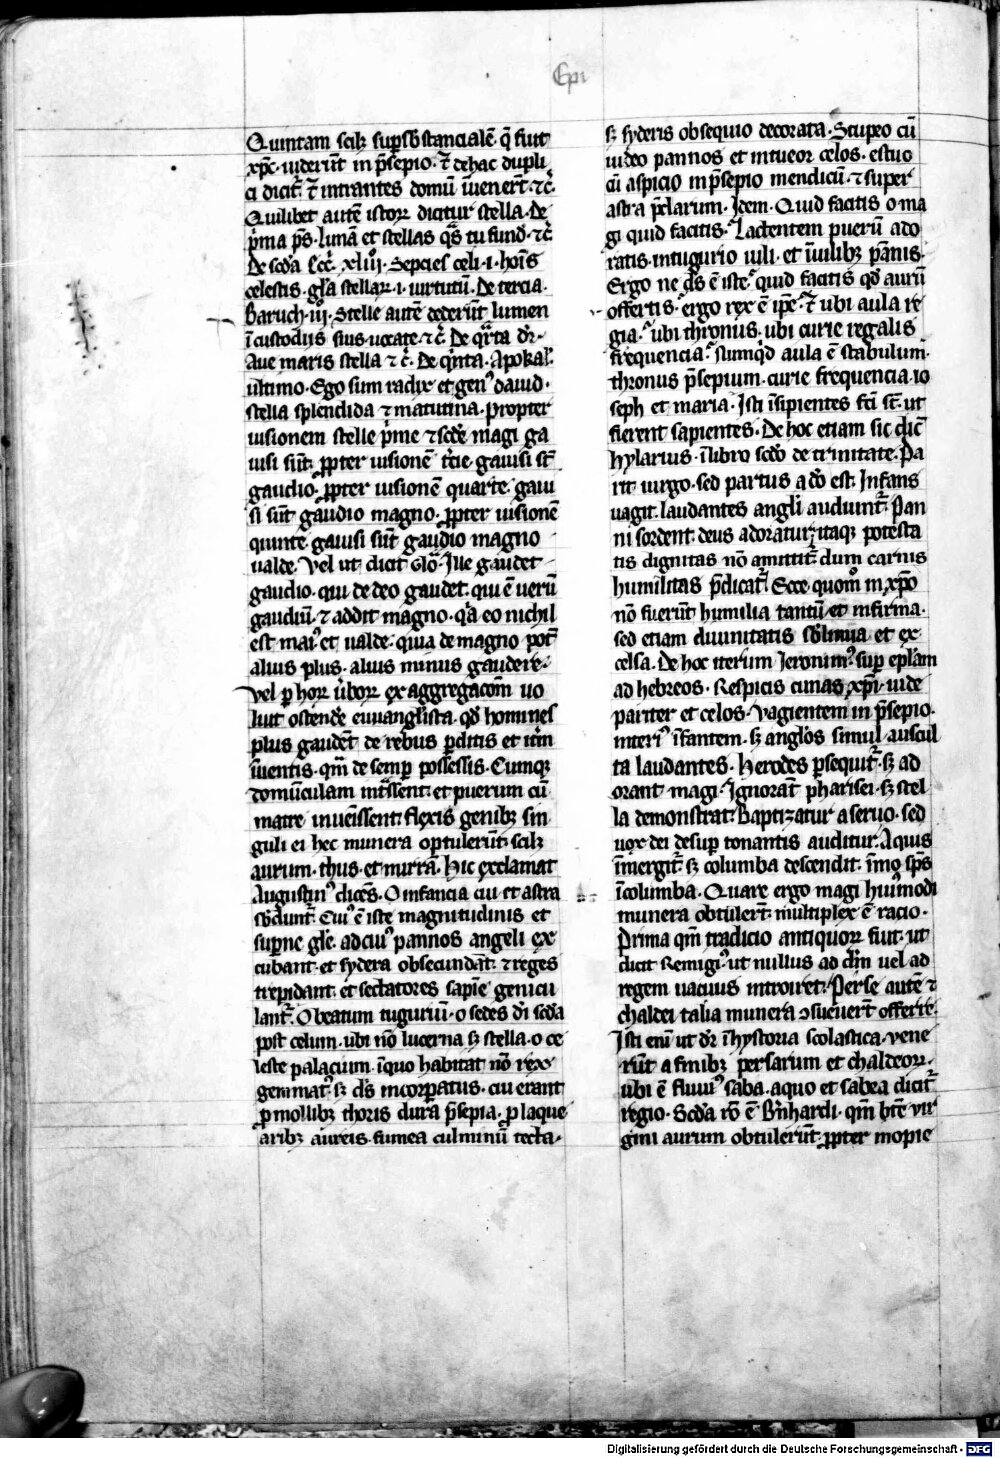 Epi
Quintam scilꝫ supersb̄stancialē q̄ fuit
xp̄c. uiderūt in p̄sepio. ⁊̄ de hac dupli
ci dicit᷑. ⁊̄ intrantes domū īuenerūt. ⁊c̄.
Quilibet autē istoꝝ dicitur stella. De
p̄ma ps̄. lunā et stellas q̄s tu fund̄. ⁊c̄
De scd̄a Ecc̄. xliiij. Sepcies celi. i. hoīs
celestis. gl̄a stellaꝝ. i. uirtutū. De tercia.
Baruch. iij. Stelle autē dederūt lumen
ī custodijs suis. uocate. ⁊c̄. De q̄rta dr̄.
Aue maris stella ⁊c̄. De q̄nta. Apokal.
ultimo. Ego sum radix et genꝰ dauid.
stella splendida ⁊ matutina. propter
uisionem stelle p̄me ⁊ scd̄e magi ga
uisi sūt. ꝓpter uisionē t̄cie. gauisi st̄
gaudio. ꝓpter uisionē quarte. gaui
si sūt gaudio magno. ꝓpter uisionē
quinte. gauisi sūt gaudio magno
ualde. Vel ut dicit Glo᷑. Ille gaudet
gaudio. qui de deo gaudet. qui ē uerū
gaudiū. ⁊ addit magno. q̄a eo nichil
est maiꝰ et ualde. quia de magno pot̄
alius plus. alius minus gaudere.
Vel ꝑ hoꝝ ūboꝝ exaggregacōm uo
luit ostend̄e euuangl̄ista. qd̄ homines
plus gaudēt de rebus ꝑditis et itm̄
īuentis. qm̄ de semꝑ possessis. Cumqꝫ
domūculam int̄ssent. et puerum cū
matre inuēissent. flexis genibꝫ sin
guli ei hec munera optulerūt. scilꝫ
aurum. thus. et murrā. Hic exclamat
Augustinꝰ dicēs. O infancia cui et astra
sb̄dunt᷑. Cuiꝰ ē iste magnitudinis et
suꝑne gl̄e. ad cuiꝰ pannos angeli ex
cubant. et sydera obsecundāt. ⁊ reges
trepidant. et sectatores sapīe genicu
lant᷑. O beatum tuguriū. o sedes di scd̄a
post celum. ubi nō lucerna sꝫ stella. o ce
leste palacium. ī quo habitat nō rex
gemmatꝰ. sꝫ ds̄ incorꝑatus. cui erant
ꝑ mollibꝫ thoris dura p̄sepia. ꝑ laque
aribꝫ aureis. fumea culminū tecta.
sꝫ syderis obsequio decorata. Stupeo cū
uideo pannos et intueor celos. estuo
cū aspicio in p̄sepio mendicū. ⁊ super
astra p̄clarum. Idem. Quid facitis o ma
gi quid facitis. Lactentem puerū ado
ratis. in tugurio uili. et ī uilibꝫ pānis.
Ergo ne ds̄ ē iste. quid facitis qd̄ aurū
offertis. ergo rex ē ip̄e. ⁊̄ ubi aula re
gia. ubi thronus. ubi curie regalis
frequencia. Numqd̄ aula ē stabulum.
thronus p̄sepium. curie frequencia. io
seph et maria. Isti īsipientes fc̄i st̄. ut
fierent sapientes. De hoc etiam sic dic̄
hylarius. ī libro scd̄o de trinitate. Pa
rit uirgo. sed partus a do est. Infans
uagit. laudantes angl̄i audiunt᷑. Pan
ni sordent. deus adoratur. itaqꝫ potesta
tis dignitas nō amittit᷑. dum carnis
humilitas p̄dicat᷑. Ecce quom̊ in xp̄o
nō fuerūt humilia tantū et infirma.
sed etiam diuinitatis sb̄limia et ex
celsa. De hoc iterum Jeronimꝰ. suꝑ epl̄am
ad hebreos. Respicis cunas xp̄i. uide
pariter et celos. Vagientem in p̄sepio.
interiꝰ īfantem. sꝫ angl̄os simul auscul
ta laudantes. Herodes ꝑsequit᷑. sꝫ ad
orant magi. Ignorāt pharisei. sꝫ stel
la demonstrat. Baptizatur a seruo. sed
uox dei desuꝑ tonantis auditur. Aquis
īmergit᷑. sꝫ columba descendit. īmo sp̄s
ī columba. Quare ergo magi huiꝰmodi
munera obtulerūt. multiplex ē racio.
Prima qm̄ tradicio antiquoꝝ fuit. ut
dicit Remigiꝰ. ut nullus ad dm̄ uel ad
regem uacuus introiret. Perse autē ⁊
chaldei talia munera ꝯsueuerūt offerre.
Isti enī ut dr̄ ī hystoria scolastica. vene
rūt a finibꝫ persarum et chaldeoꝝ.
ubi ē fluuiꝰ saba. a quo et sabea dicit᷑
regio. Scd̄a rō ē B̄nhardi. qm̄ btē vir
gini aurum obtulerūt. ꝓpter inopie